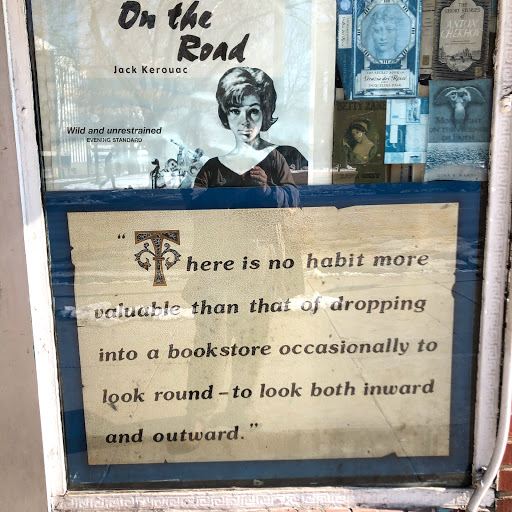 On the
Road
Jack Kerouac
Wild and unrestrained
EVENING STANDARD
ANTON
CHEKHOV
BETTY ZANE
"There is no habit more
valuable than that of dropping
into a bookstore occasionally to
look round – to look both inward
and outward."